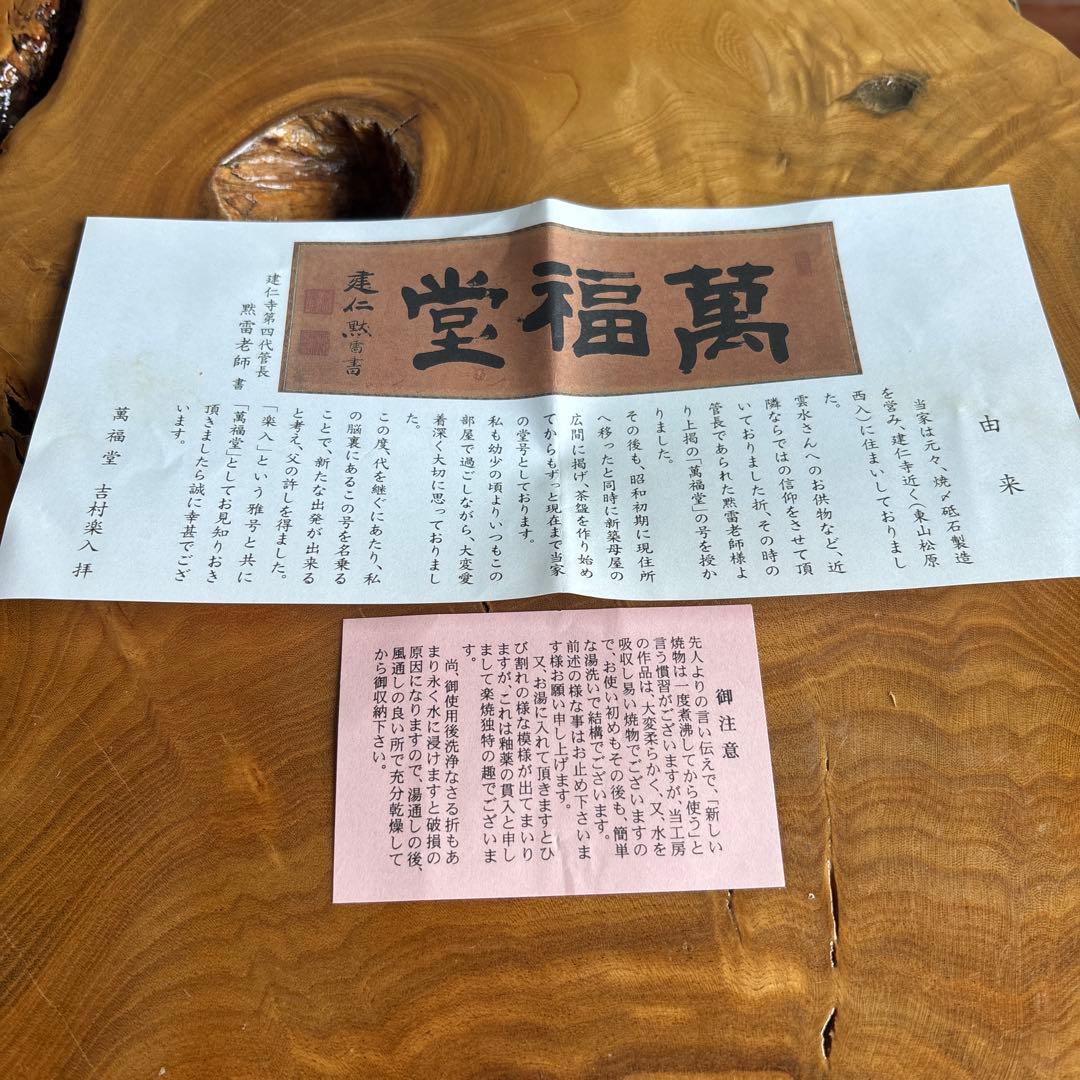 萬福堂
建仁黙雷書
建仁寺第四代管長
黙雷老師 書
由来
当家は元々、焼〆砥石製造
を営み、建仁寺近く(東山松原
西入)に住まいしておりまし
た。
雲水さんへのお供物など、近
隣ならではの信仰をさせて頂
いておりました折、その時の
管長であられた黙雷老師様よ
り上掲の「萬福堂」の号を授か
りました。
その後も、昭和初期に現住所
へ移ったと同時に新築母屋の
広間に掲げ、茶盌を作り始め
てからもずっと現在まで当家
の堂号としております。
私も幼少の頃よりいつもこの
部屋で過ごしながら、大変愛
着深く大切に思っておりまし
た。
この度、代を継ぐにあたり、私
の脳裏にあるこの号を名乗る
ことで、新たな出発が出来る
と考え、父の許しを得ました。
「楽入」という雅号と共に
「萬福堂」としてお見知りおき
頂きましたら誠に幸甚でござ
います。
萬福堂 吉村楽入 拝
御注意
先人よりの言い伝えで、「新しい
焼物は一度煮沸してから使う」と
言う慣習がございますが、当工房
の作品は、大変柔らかく、又、水を
吸収し易い焼物でございますの
で、お使い初めもその後も、簡単
な湯洗いで結構でございます。
前述の様な事はお止め下さいま
す様お願い申し上げます。
又、お湯に入れて頂きますとひ
び割れの様な模様が出てまいり
ますが、これは釉薬の貫入と申し
まして楽焼独特の趣でございま
す。
尚、御使用後洗浄なさる折もあ
まり永く水に浸けますと破損の
原因になりますので、湯通しの後、
風通しの良い所で充分乾燥して
から御収納下さい。